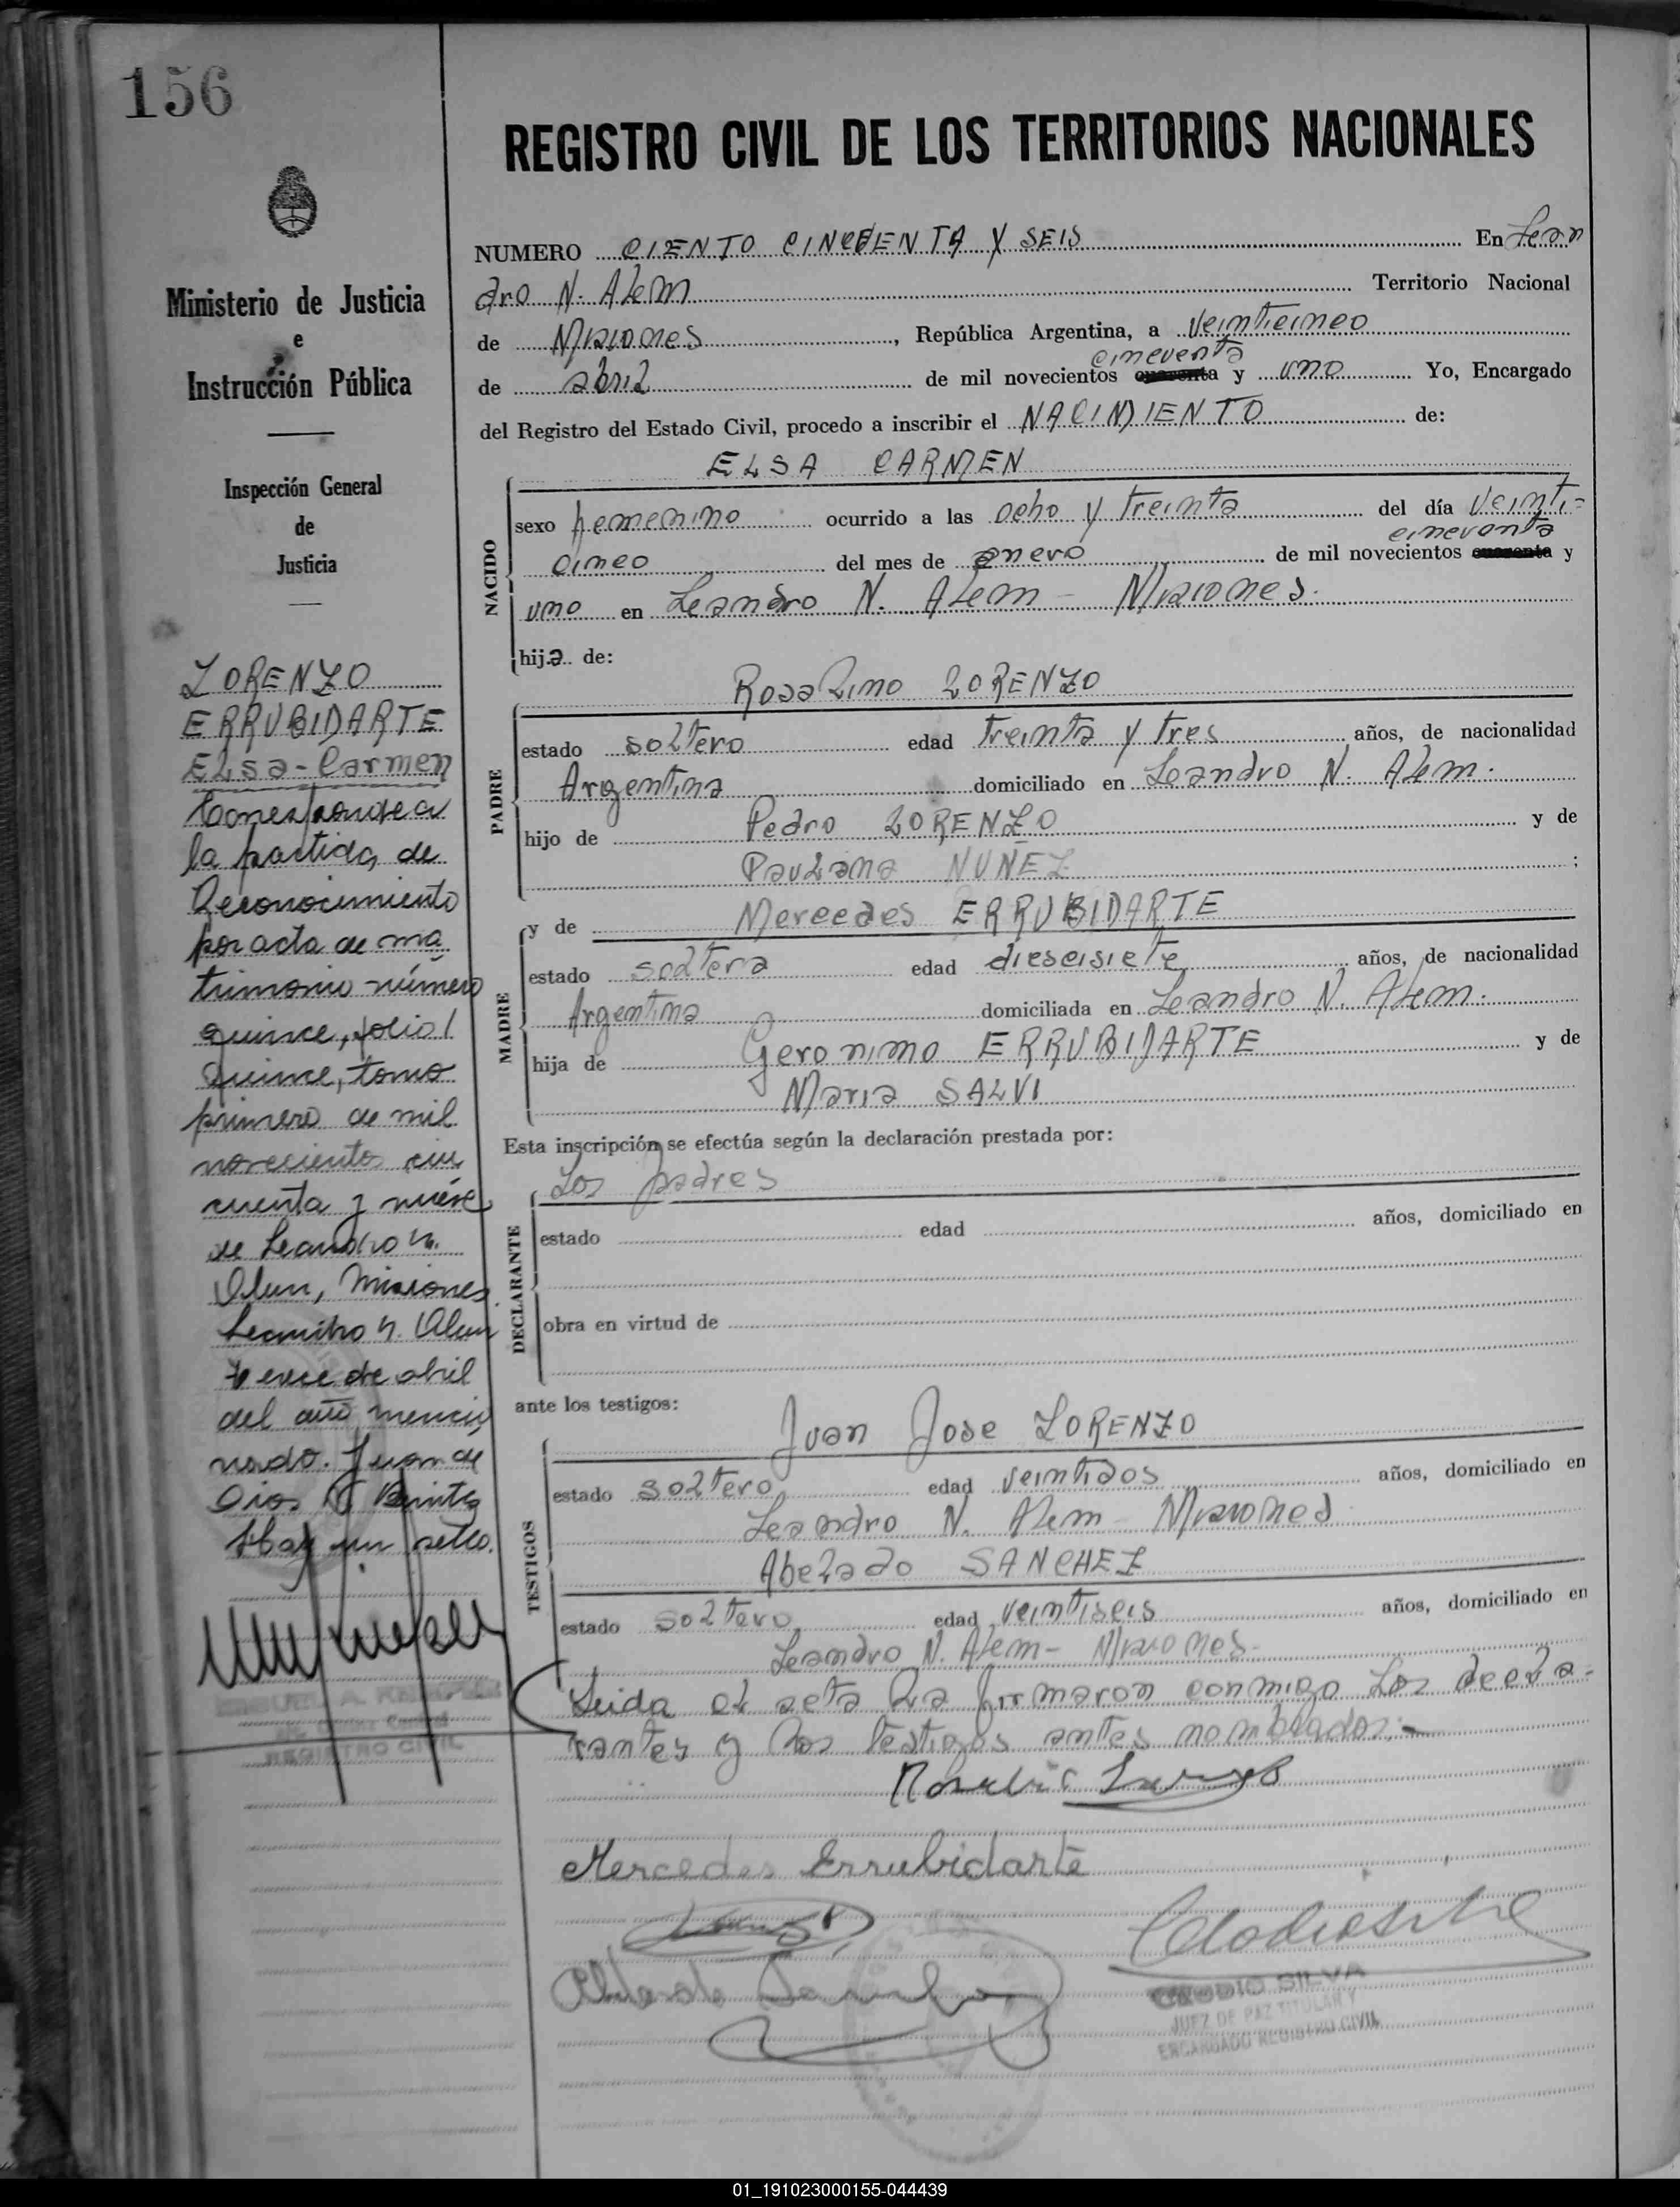 156
Ministerio de Justicia
e
Instrucción Pública
Inspección General
de
Justicia
LORENZO
ERRUBIDARTE
ELsa - Carmen
Corresponde a
la partida de
Reconocimiento
por acta de ma
trimonio número
quince, folio
quince, tomo
primero de mil
novecientos cin
cuenta y nueve
de Leandro N.
Alem, Misiones.
Leandro N. Alem
de abril
del año mencio
nado. Juan de
Dios Benitez
Hay un sello.
REGISTRO CIVIL
REGISTRO CIVIL DE LOS TERRITORIOS NACIONALES
NUMERO CIENTO CINCUENTA Y SEIS En Lean
dro N. ALem Territorio Nacional
de Misiones, República Argentina, a veinticinco
cincuenta
de abril de mil novecientos cuarenta y uno Yo, Encargado
del Registro del Estado Civil, procedo a inscribir el NACIMIENTO de:
ELSA CARMEN
NACIDO
sexo femenino ocurrido a las ocho y treinta del día veinti-
cincuenta
cinco del mes de enero de mil novecientos cuarenta y
uno en Leandro N. ALem - Misiones.
hija de:
RosaLino LORENZO
PADRE
estado soltero edad treinta y tres años, de nacionalidad
Argentina domiciliado en Leandro N. ALem.
hijo de Pedro LORENZO y de
PauLana NUÑEZ ;
y de Mercedes ERRUBIDARTE
MADRE
estado soltera edad diescisiete años, de nacionalidad
Argentina domiciliada en Leandro N. ALem.
hija de Geronimo ERRUBIDARTE y de
Maria SALVI
Esta inscripción se efectúa según la declaración prestada por:
Los padres
DECLARANTE
estado edad años, domiciliado en
obra en virtud de
ante los testigos:
Juan Jose LORENZO
TESTIGOS
estado soltero edad veintidos años, domiciliado en
Leandro N. ALem - Misiones
AbeLado SANCHEZ
estado soltero edad veintiseis años, domiciliado en
Leandro N. ALem - Misiones.
Leida el acta La firmaron conmigo Los decla-
rantes y los testigos antes nombrados.-
Mercedes Errubidarte
CLODIO SILVA
JUEZ DE PAZ TITULAR Y
ENCARGADO REGISTRO CIVIL
01_191023000155-044439